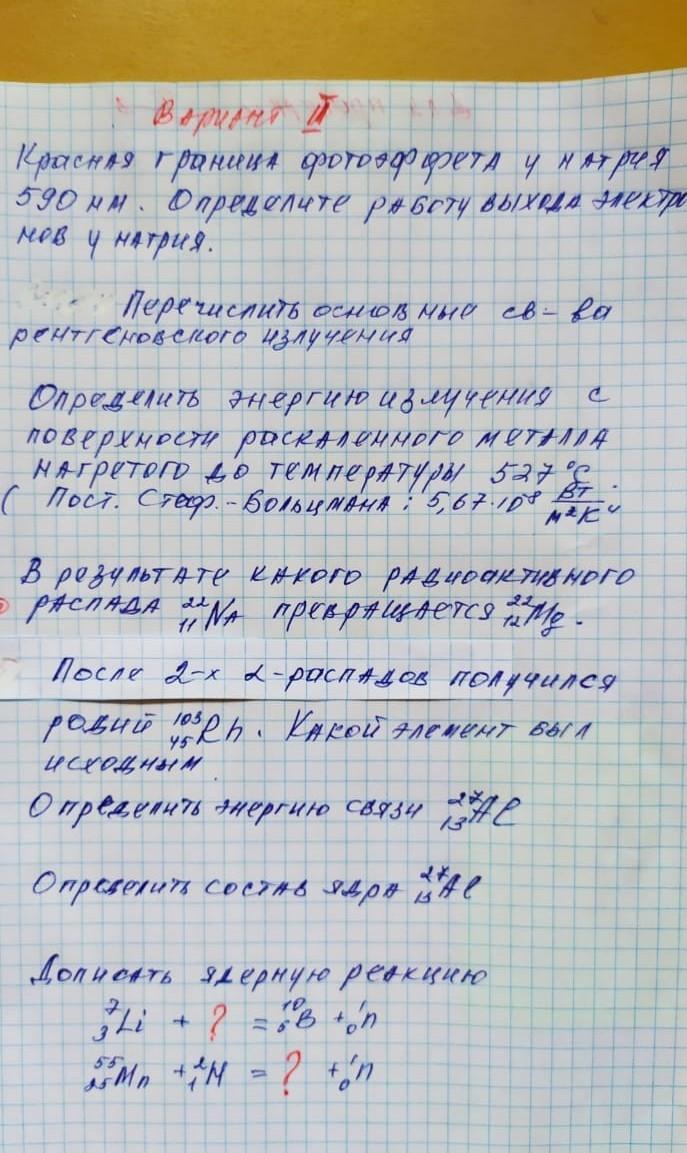 Вариант II
Красная граница фотоэффета у натрия
590 нм. Определите работу выхода электро
нов у натрия.
Перечислить основные св-ва
рентгеновского излучения
Определить энергию излучения с
поверхности раскаленного металла
нагретого до температуры 527 °С.
( Пост. Стеф.-Больцмана: 5,67·10⁸ Вт/м²К⁴
В результате какого радиоактивного
распада ²²₁₁Na превращается ²²₁₂Mg.
После 2-х α-распадов получился
родий ¹⁰³₄₅Rh. Какой элемент был
исходным
Определить энергию связи ²⁷₁₃Al
Определить состав ядра ²⁷₁₃Al
Дописать ядерную реакцию
⁷₃Li + ? = ¹⁰₅B + ¹₀n
⁵⁵₂₅Mn + ²₁H = ? + ¹₀n